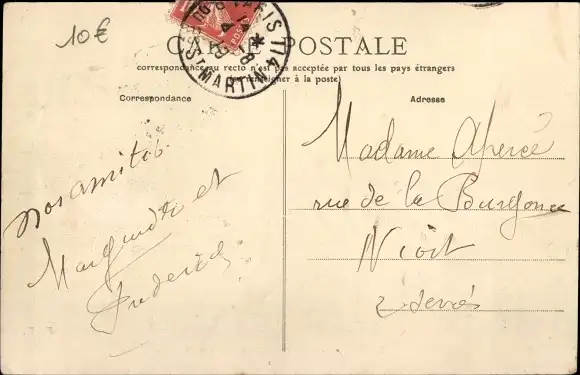 10€
CARTE POSTALE
correspondance au recto n'est pas acceptée par tous les pays étrangers
(se renseigner à la poste)
Correspondance
Adresse
PARIS 114
St MARTIN
nos amitiés
Marguerite et
Madame Apercé
rue de la Burgonce
Niort
2 Sevrès